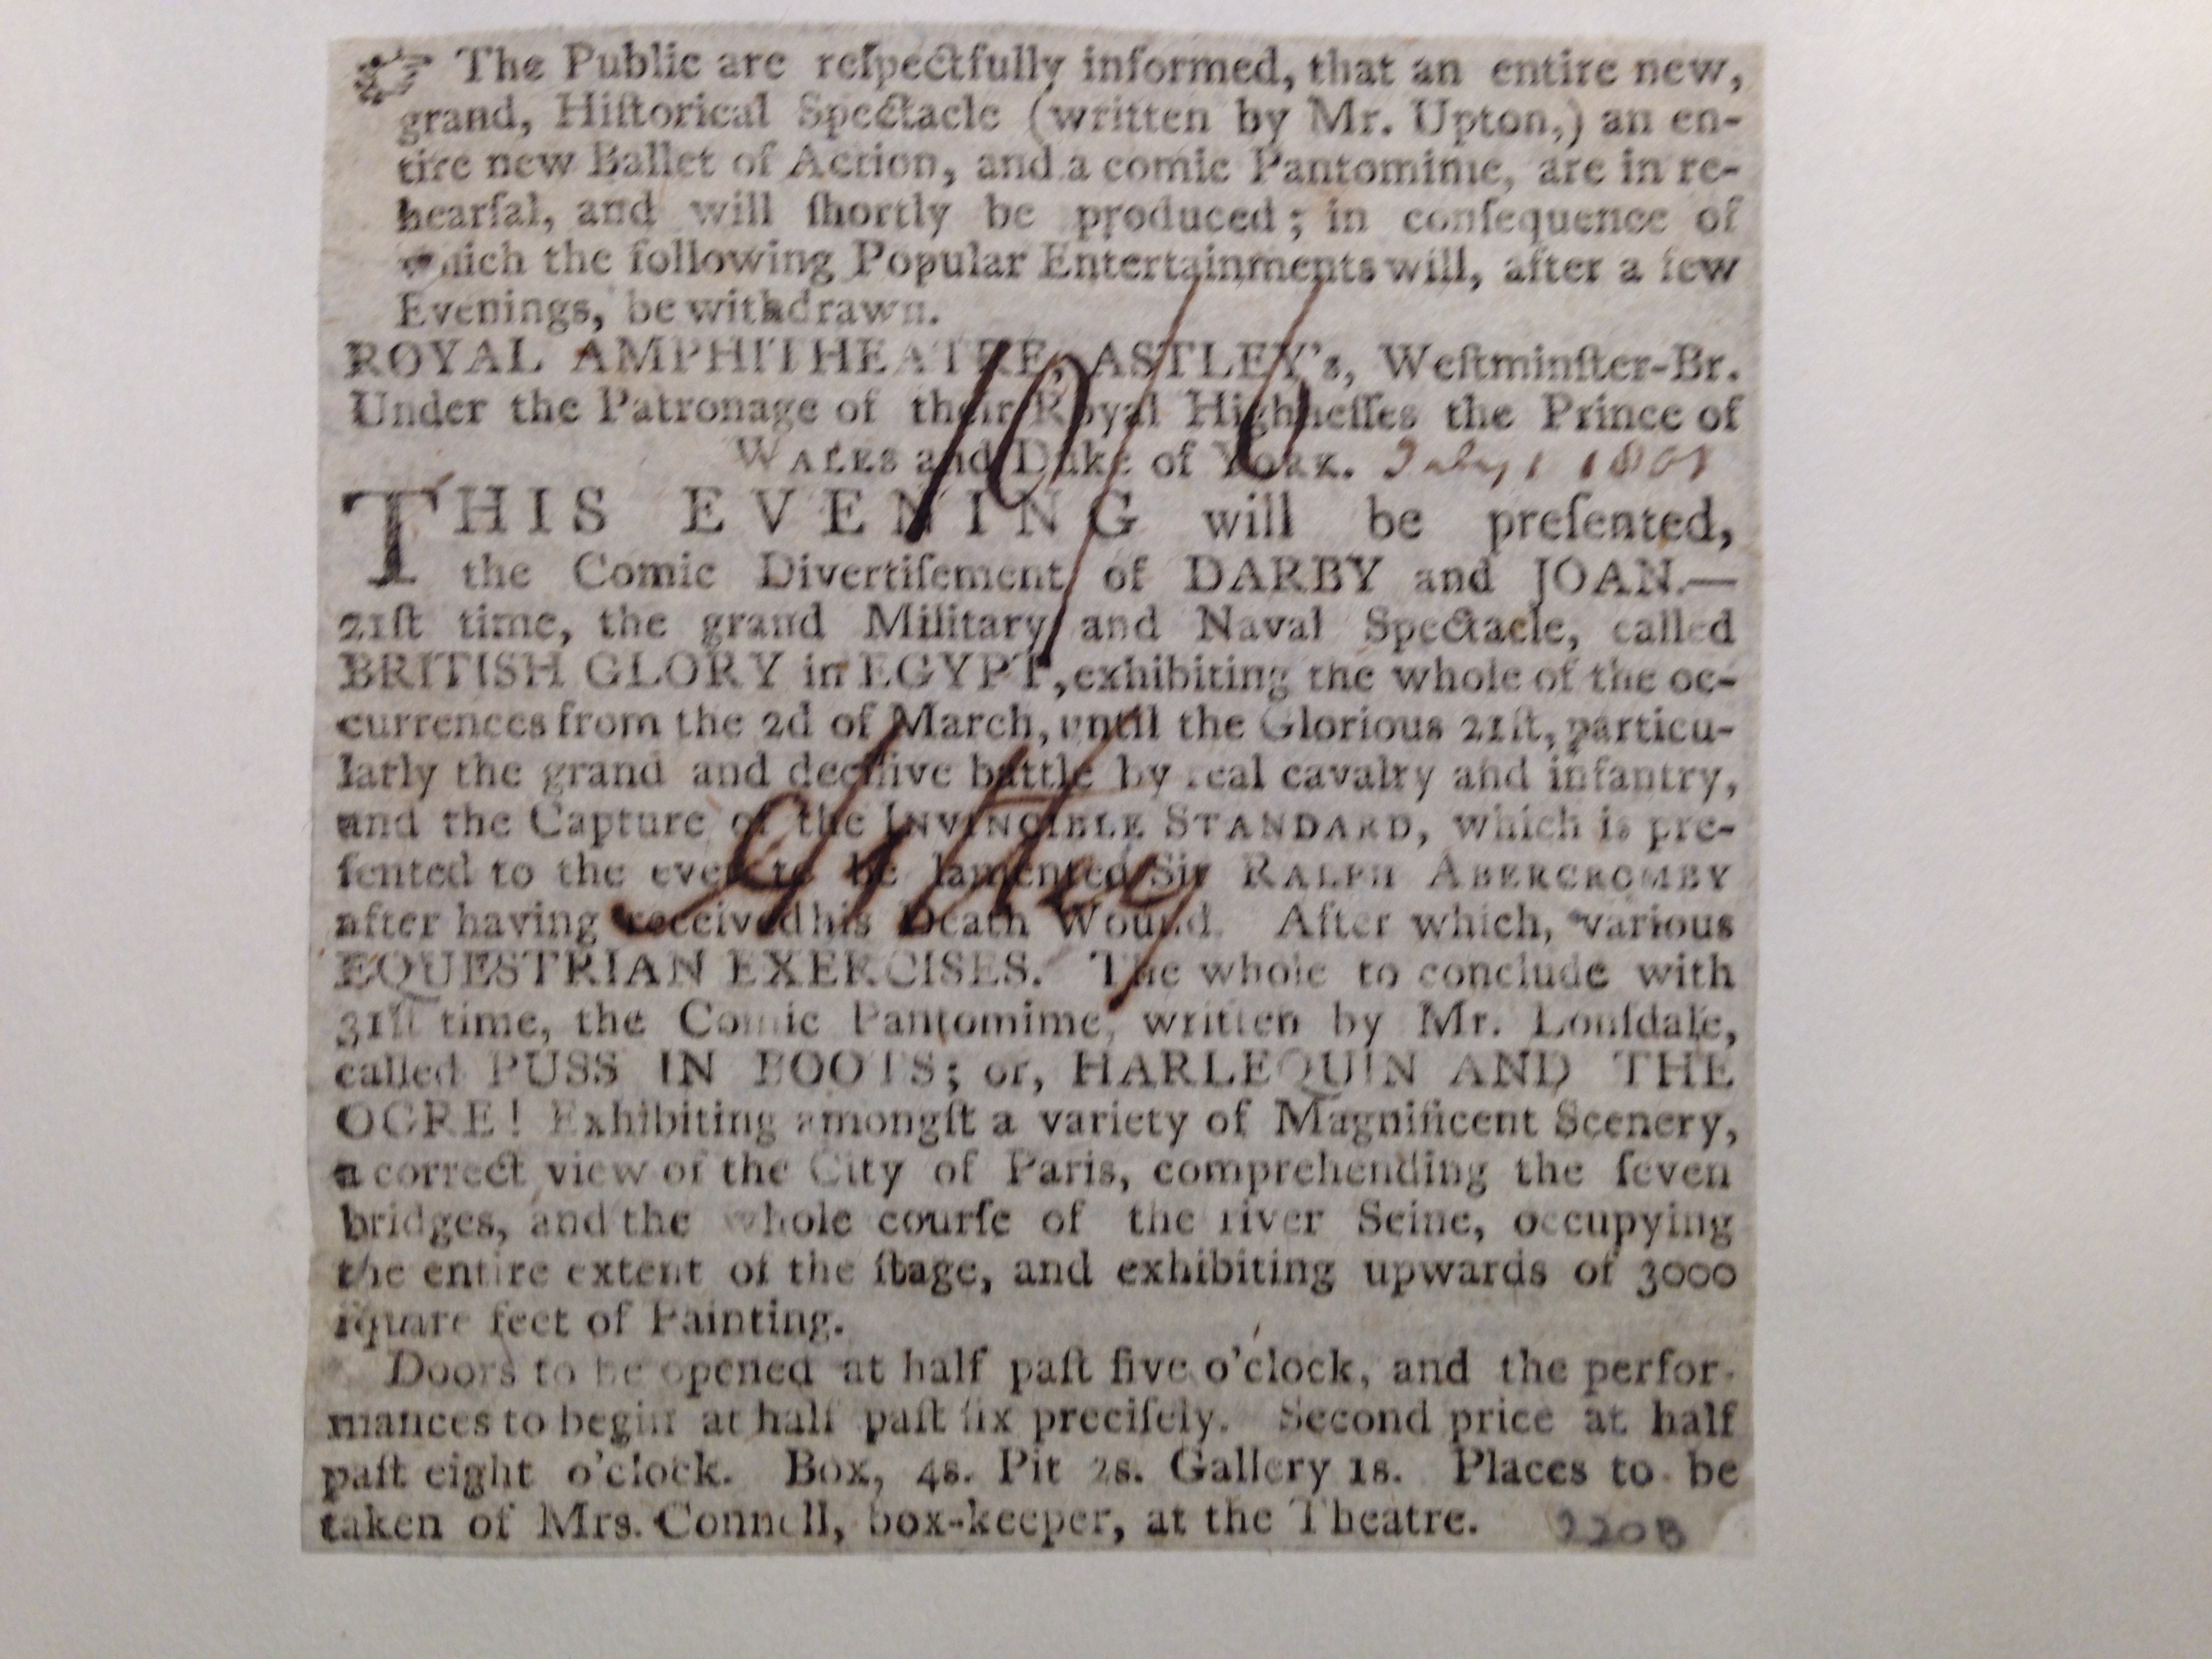 ☞ The Public are reſpectfully informed, that an entire new,
grand, Hiſtorical Spectacle (written by Mr. Upton,) an en-
tire new Ballet of Action, and a comic Pantomime, are in re-
hearſal, and will ſhortly be produced; in conſequence of
which the following Popular Entertainments will, after a few
Evenings, be withdrawn.
ROYAL AMPHITHEATRE, ASTLEY's, Weſtminſter-Br.
Under the Patronage of their Royal Highneſſes the Prince of
WALES and Duke of YORK. July 1 1801
THIS EVENING will be preſented,
the Comic Divertiſement of DARBY and JOAN.—
21ſt time, the grand Military and Naval Spectacle, called
BRITISH GLORY in EGYPT, exhibiting the whole of the oc-
currences from the 2d of March, until the Glorious 21ſt, particu-
larly the grand and deciſive battle by real cavalry and infantry,
and the Capture of the INVINCIBLE STANDARD, which is pre-
ſented to the ever to be lamented Sir RALPH ABERCROMBY
after having received his Death Wound. After which, various
EQUESTRIAN EXERCISES. The whole to conclude with
31ſt time, the Comic Pantomime, written by Mr. Lonſdale,
called PUSS IN BOOTS; or, HARLEQUIN AND THE
OGRE! Exhibiting amongſt a variety of Magnificent Scenery,
a correct view of the City of Paris, comprehending the ſeven
bridges, and the whole courſe of the river Seine, occupying
the entire extent of the ſtage, and exhibiting upwards of 3000
ſquare feet of Painting.
Doors to be opened at half paſt five o'clock, and the perfor-
mances to begin at half paſt ſix preciſely. Second price at half
paſt eight o'clock. Box, 4s. Pit 2s. Gallery 1s. Places to be
taken of Mrs. Connell, box-keeper, at the Theatre. 220B